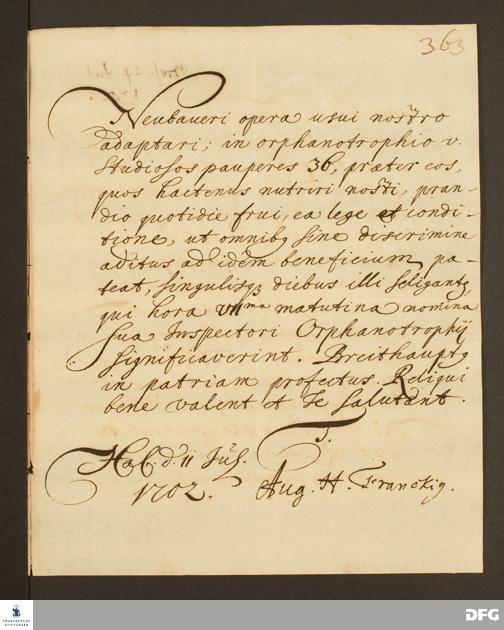 363
Neubaueri opera usui nostro
adaptari; in orphanotrophio v.
studiosos pauperes 36, præter eos,
quos hactenus nutriri nosti, pran-
dio quotidie frui, ea lege et condi-
tione, ut omnibq sine discrimine
aditus ad idem beneficium pa-
teat, singulisqz diebus illi seligantq
qui hora VIIma matutina nomina
sua Inspectori Orphanotrophij
significaverint. Breithauptq
in patriam profectus. Reliqui
bene valent et Te salutant.
T.
Hal. d. 11 Jul.
1702. Aug. H. Franckiq.
FRANCKESCHE
STIFTUNGEN
DFG